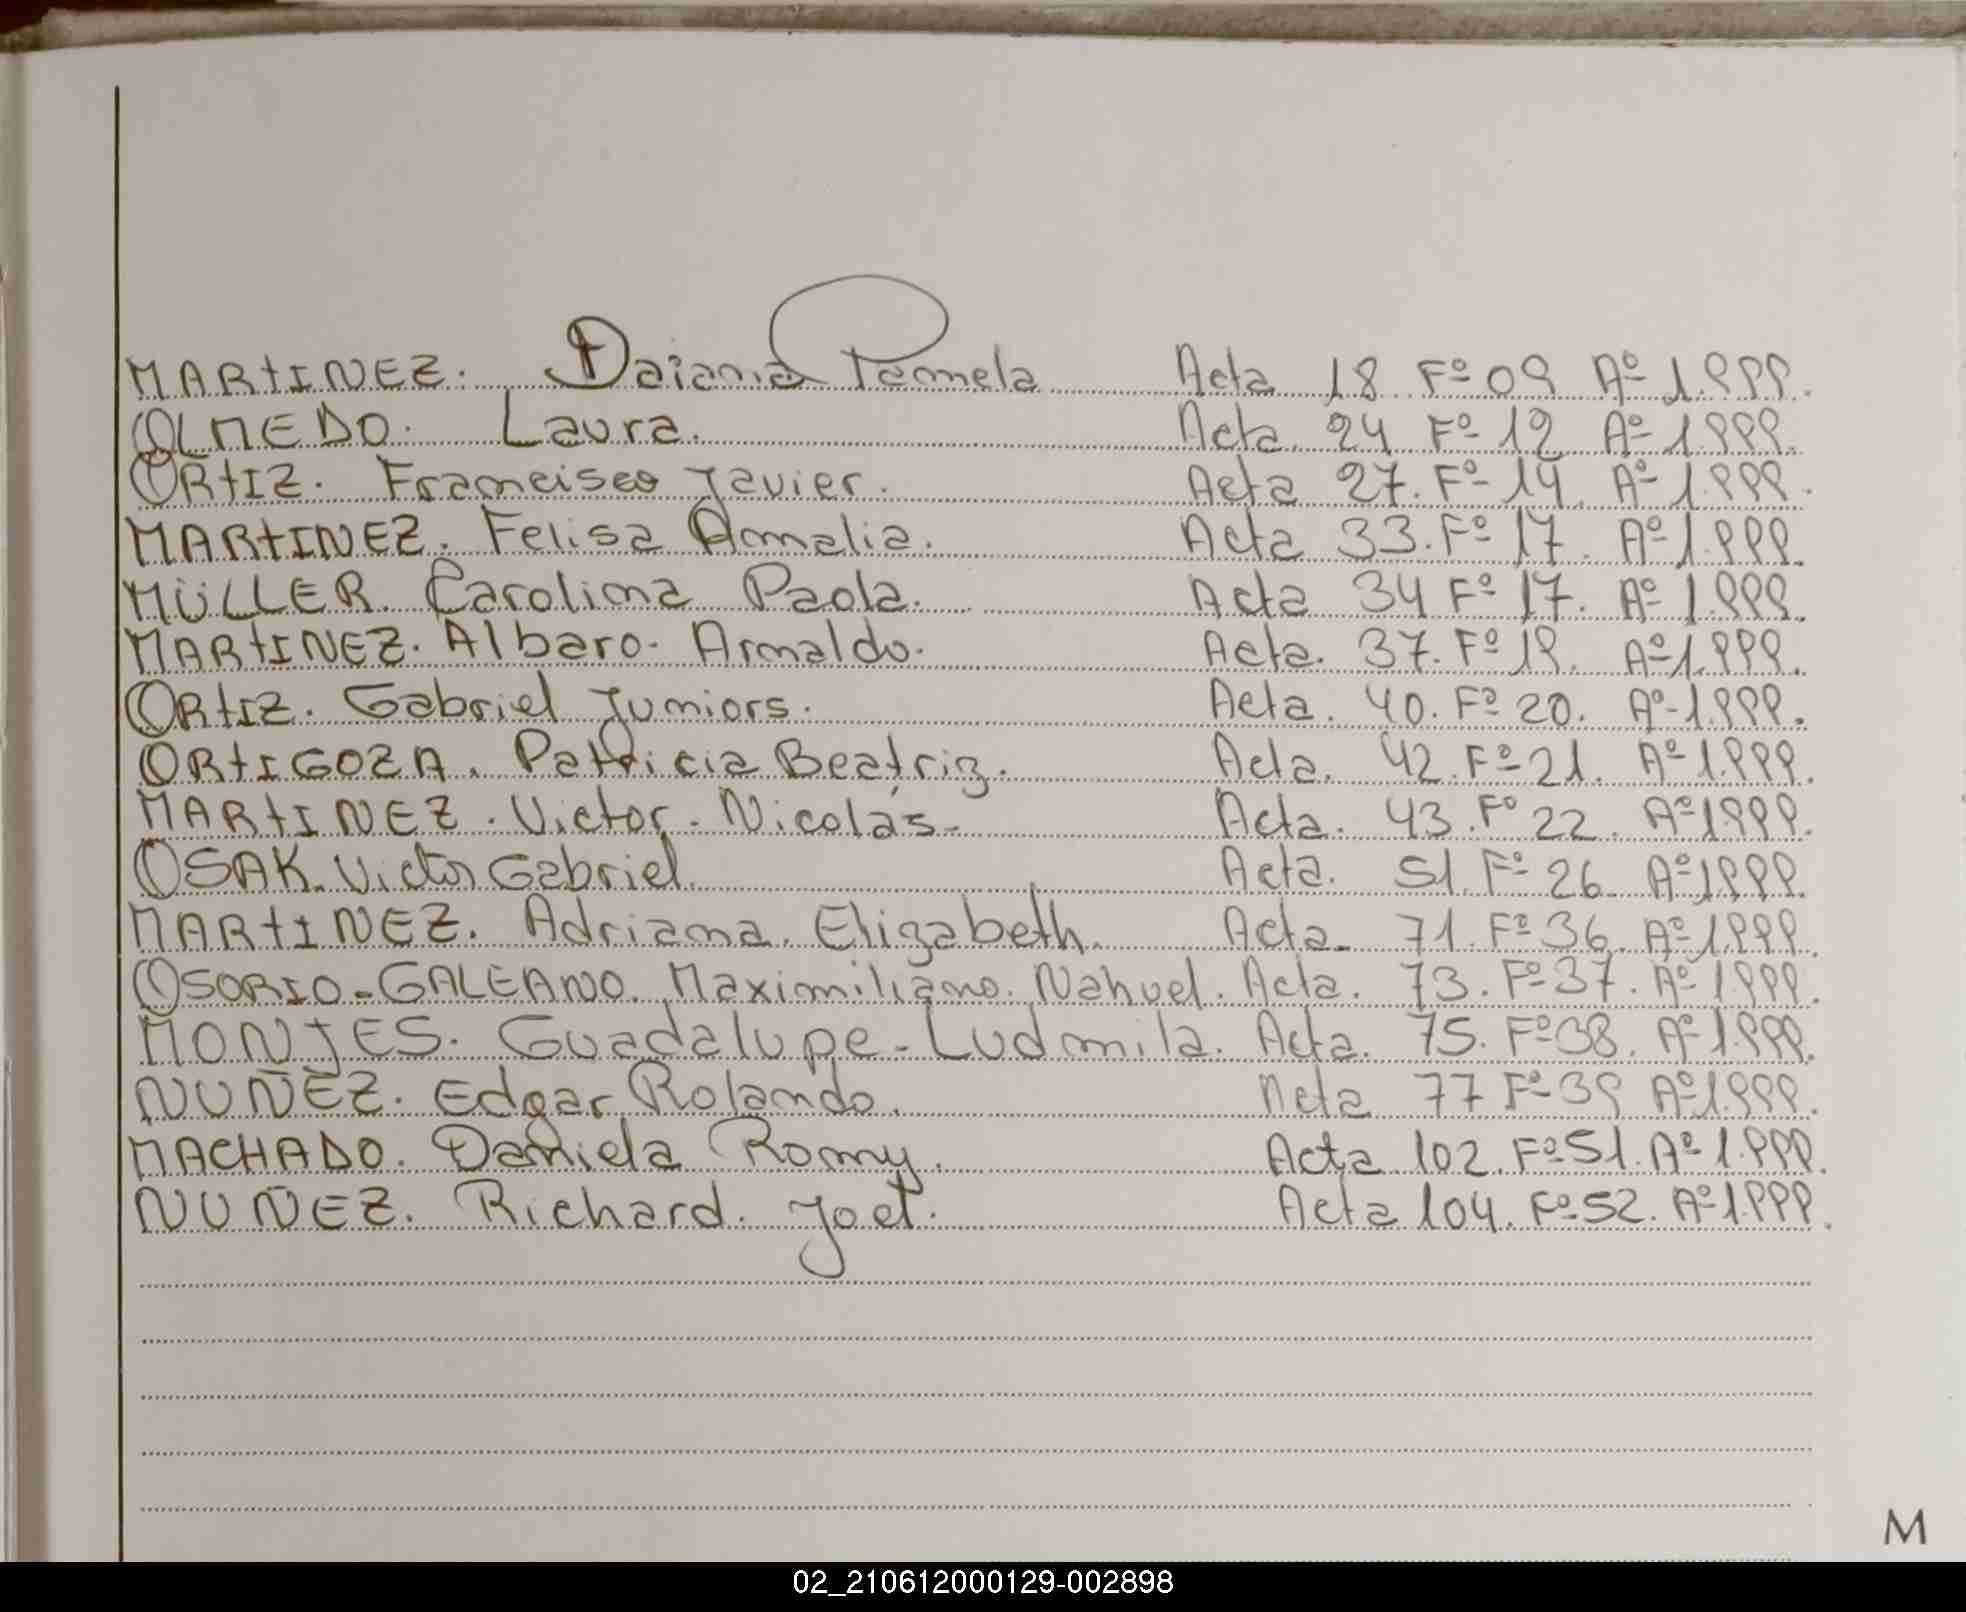 MARTINEZ. Daiana Pamela Acta 18 Fº 09 Aº 1.999.
OLMEDO. Laura. Acta. 24 Fº 12 Aº 1.999.
ORTIZ. Francisco Javier. Acta 27. Fº 14. Aº 1.999.
MARTINEZ. Felisa Amalia. Acta 33. Fº 17. Aº 1.999.
MÜLLER. Carolina Paola. Acta 34 Fº 17. Aº 1.999.
MARTINEZ. Albaro. Arnaldo. Acta. 37. Fº 19. Aº 1.999.
ORTIZ. Gabriel Juniors. Acta. 40. Fº 20. Aº 1.999.
ORTIGOZA. Patricia Beatriz. Acta. 42. Fº 21. Aº 1.999.
MARTINEZ. Victor. Nicolás. Acta. 43. Fº 22. Aº 1999.
OSAK. Victor Gabriel. Acta. 51. Fº 26. Aº 1999.
MARTINEZ. Adriana. Elizabeth. Acta. 71. Fº 36. Aº 1.999.
OSORIO-GALEANO. Maximiliano. Nahuel. Acta. 73. Fº 37. Aº 1999.
MONJES. Guadalupe-Ludmila. Acta. 75. Fº 38. Aº 1.999.
NUÑEZ. Edgar Rolando. Acta 77 Fº 39 Aº 1.999.
MACHADO. Daniela Romy. Acta 102. Fº 51. Aº 1.999.
NUÑEZ. Richard. Joel. Acta 104. Fº 52. Aº 1.999.
M
02_210612000129-002898